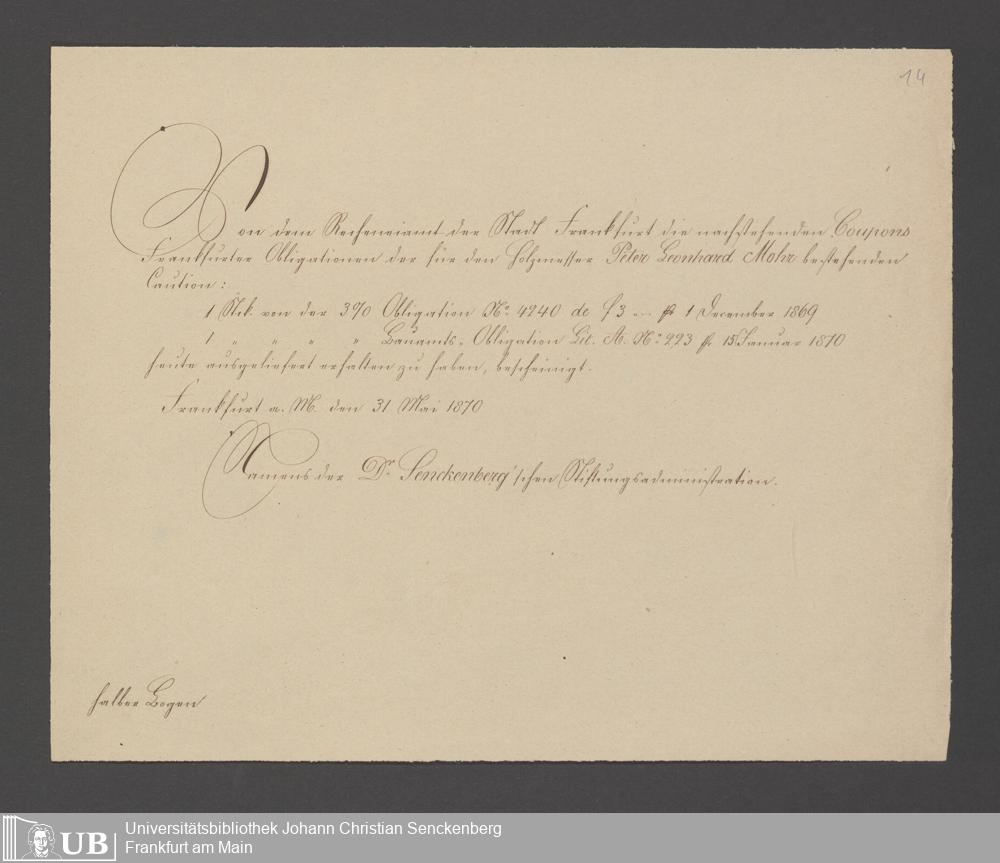 14
Von dem Rechneiamt der Stadt Frankfurt die nachstehenden Coupons
Frankfurter Obligationen der für den Holzmesser Peter Leonhard Mohr bestehenden
Caution:
1 Stck. von der 3% Obligation No. 4240 de f 3 .-. pr 1 December 1869
1 " " " " Bauamts-Obligation Lit. A. No. 223 pr 15 Januar 1870
heute ausgeliefert erhalten zu haben, bescheinigt.
Frankfurt a. M. den 31 Mai 1870
Namens der Dr. Senckenberg'schen Stiftungsadministration.
halber Bogen
UB
Universitätsbibliothek Johann Christian Senckenberg
Frankfurt am Main